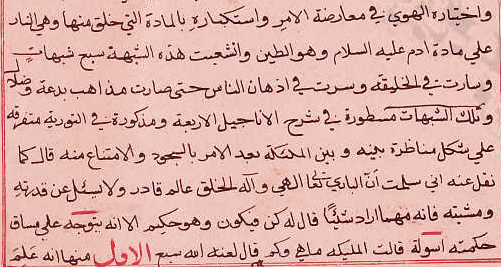 واختياره الهوي في معارضة الامر واستكباره بالمادة التي خلق منها وهي النار
علي مادة ادم عليه السلام وهو الطين وانشعبت هذه الشبهة سبع شبهات
وسارت في الخليقة وسرت في اذهان الناس حتى صارت مذاهب بدعة وضلالة
وتلك الشبهات مسطورة في شرح الاناجيل الاربعة ومذكورة في التورية متفرقة
علي شكل مناظرة بينه و بين الملئكة بعد الامر بالسجود والامتناع منه قال كما
نقل عنه اني سلمت ان الباري تعالى الهي واله الخلق عالم قادر ولا يسئل عن قدرته
ومشيته فانه مهما اراد شيئا قال له كن فيكون وهو حكيم الا انه يتوجه علي مساق
حكمته اسولة قالت المليكه ما هي وكم قال لعنه الله سبع الاول منها انه علم